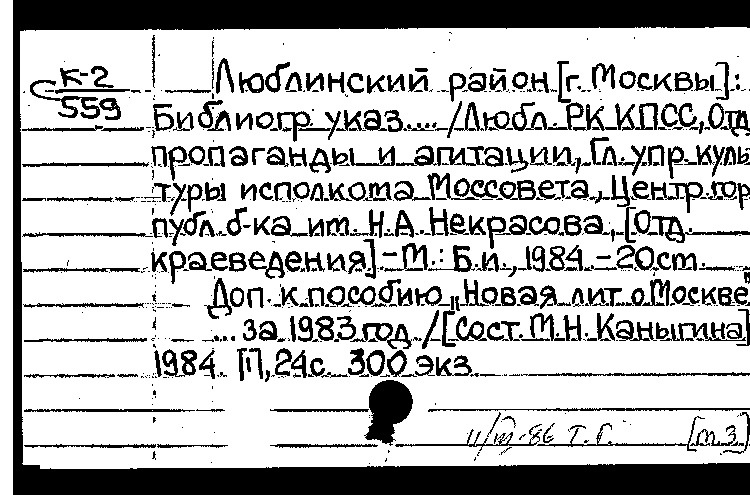 К-2
559
Люблинский район [г. Москвы]:
Библиогр указ.... /Любл. РК КПСС, Отд
пропаганды и агитации, Гл. упр куль
туры исполкома Моссовета, Центр.гор
публ. б-ка им. Н.А. Некрасова, [Отд.
краеведения] - М.: Б.и., 1984. - 20 ст.
Доп. к пособию „Новая лит о Москве"
... за 1983 год / [Сост. М.Н. Каныгина]
1984. [1], 24 с. 300 экз
11/III-86 Т. Г. [т. 3]